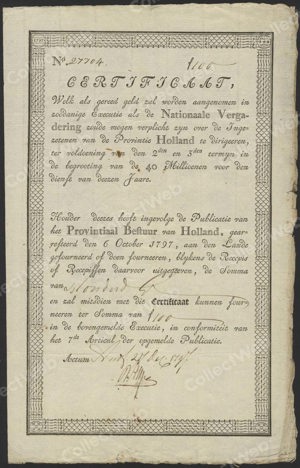 No. 27704 ƒ100
CERTIFICAAT,
Welk als gereed geld zal worden aangenomen in
zoddanige Executie als de Nationaale Verga-
dering zoude mogen verplicht zyn over de Inge-
zetenen van de Provintie Holland te dirigeeren,
ter voldoening van den 2den en 3den termyn in
de begrooting van de 40 Millioenen voor den
dienst van deezen Jaare.
Houder deezes heeft ingevolge de Publicatie van
het Provintiaal Bestuur van Holland, gear-
resteerd den 6 October 1797, aan den Lande
gefourneerd of doen fourneeren, blykens de Recepis
of Recepissen daarvoor uitgegeven, de Somma
van Honderd
en zal mitsdien met dit Certificaat kunnen four-
neeren ter Somma van ƒ100
in de bovengemelde Executie, in conformiteit van
het 7de Articul der opgemelde Publicatie.
Actum